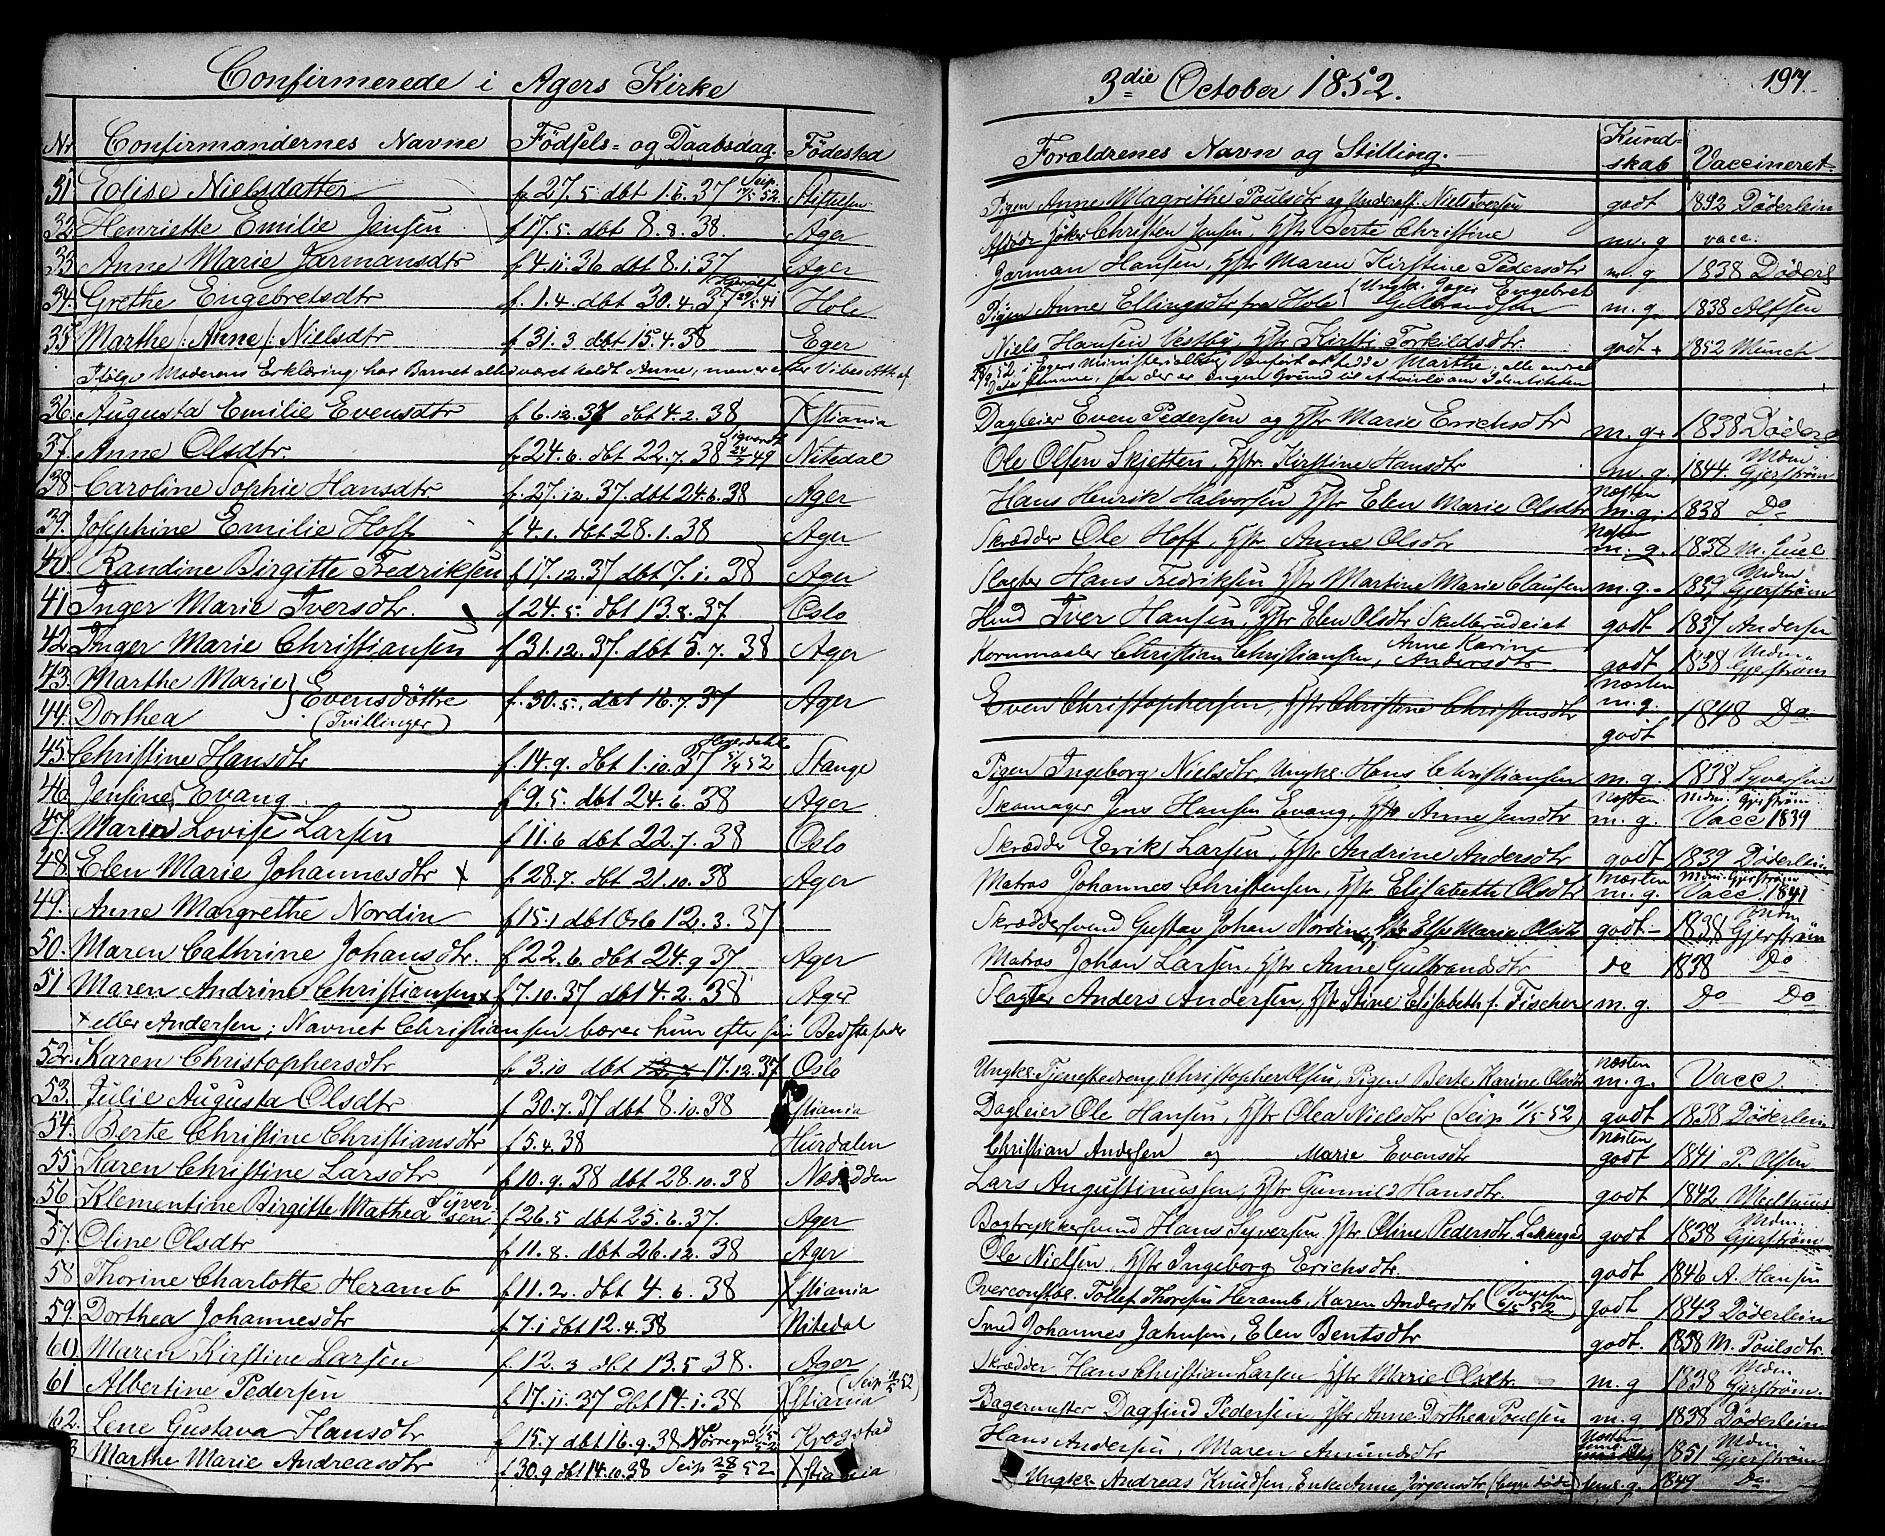 Confirmerede i Agers Kirke
Nr. Confirmandernes Navne Fødsels- og Daabsdag. Fødested
31. Elise Nielsdatter f. 27. 5. dbt 1. 6. 37 Seip 52 Stiftelsen
32. Henriette Emilie Jensen f. 17. 5. dbt 8. 8. 38. Ager
33. Anne Marie Jarmansdtr f. 4. 11. 36 dbt 8. 1. 37 Ager
34. Grethe Engebretsdtr f. 1. 4. dbt 30. 4. 37 Hole
35. Marthe /: Anne :/ Nielsdtr f. 31. 3 dbt 15. 4. 38 Eger
Ifølge Moderens Erklæring har Barnet altid været kaldt Anne, men er efter
36. Augusta Emilie Evensdtr f. 6. 12. 37 dbt 4. 2. 38 Xstiania
37. Anne Olsdtr. f. 24. 6. dbt 22. 7. 38 49 Nitedal
38. Caroline Sophie Hansdtr f. 27. 12. 37. dbt 24. 6. 38 Ager
39. Josephine Emilie Hoff f. 4. 1. dbt 28. 1. 38 Ager
40. Randine Birgitte Fredriksen f. 17. 12. 37 dbt 7. 1. 38 Ager
41. Inger Marie Iversdtr. f. 24. 5. dbt 13. 8. 37. Oslo
42. Inger Marie Christiansen f. 31. 12. 37. dbt 5. 7. 38 Ager
43. Marthe Marie } Evensdøttre f. 30. 5. dbt 16. 7. 37 Ager
44. Dorthea (Tvillinger)
45. Christine Hansdtr f. 14. 9. dbt 1. 10. 37 52 Stange
46. Jensine Evang f. 9. 5. dbt 24. 6. 38 Ager
47. Maria Lovise Larsen f. 11. 6 dbt 22. 7. 38 Oslo
48. Elen Marie Johannesdtr x f. 28. 7. dbt 21. 10. 38 Ager
49. Anne Margrethe Nordin f. 15. 1 dbt Oslo 12. 3. 37
50. Maren Cathrine Johansdtr. f. 22. 6. dbt 24. 9 37 Ager
51 Maren Andrine Christiansen x f. 7. 10. 37 dbt 4. 2. 38 Ager
x eller Andersen; Navnet Christiansen bærer hun efter sin Bedstefader
52. Karen Christophersdtr f. 3. 10 dbt 17. 12. 37 Oslo
53. Julie Augusta Olsdtr f. 30. 7. 37 dbt 8. 10. 38 Xstiania
54. Berte Christine Christiansdtr f. 5. 4. 38 Hurdalen
55 Karen Christine Larsdtr f. 10. 9. 38 dbt 28. 10. 38 Næsodden
56 Klementine Birgitte Mathea Syversen f. 26. 5 dbt 25. 6. 37. Ager
57. Oline Olsdtr f. 11. 8. dbt 26. 12. 38 Ager
58 Thorine Charlotte Heramb f. 11. 2. dbt 4. 6. 38 Xstiania
59. Dorthea Johannesdtr f. 7. 1 dbt 12. 4. 38 Nitedal
60 Maren Kirstine Larsen f. 12. 3 dbt 13. 5 38. Ager
61 Albertine Pedersen f. 17. 11. 37 dbt 14. 1. 38 Xstiania (Seip 12/5 52)
62. Lene Gustava Hansdtr f. 15. 7 dbt 16. 9. 38 Krogstad
3 Marthe Marie Andreasdtr f. 30. 9 dbt 14. 10. 38 Seip 52 Xstiania
3die October 1852. 197.
Forældrenes Navn og Stilling. Kundskab Vaccineret
Pigen Anne Magrethe Poulsdtr og Underoff. Niels Iversen godt 1852 Døderlein
Afdøde Christen Jensen, Hstr Berte Christine m. g vacc.
Jarman Hansen, Hstr Maren Kirstine Pedersdtr m. g 1838 Døderl
Pigen Anne Ellingsdtr fra Hole Engebret Gulbrandsen m. g. 1838 Alfsen
Niels Hansen Vestby, Hstr Kirsti Torkildsdtr. godt + 1852 Munch
Marthe, alle andre
Data stemme, saa der er ingen Grund til at tvivle om Identiteten
Dagleier Even Pedersen og Hstr Marie Erichsdtr m. g + 1838 Døderl
Ole Olsen Skjetten, Hstr Kirstine Hansdtr m. g. 1844. Mdm Gjerstrøm
Hans Henrik Halvorsen Hstr Elen Marie Olsdtr næsten m. g. 1838 Do
Skrædder Ole Hoff, Hstr Anne Olsdtr næsten m. g. 1838 M. Juel
Slagter Hans Fredriksen Hstr Martine Marie Clausen m. g. 1839 Mdm Gjerstrøm
Iver Hansen, Hstr Elen Olsdtr godt 1837 Andersen
Kornmaaler Christian Christiansen, Anne Karine Andersdtr. godt 1838 Mdm Gjerstrøm
Even Christophersen, Hstr Christine Christensdtr næsten m. g. godt 1848 Do
Pigen Ingeborg Nielsdtr, Ungkl. Hans Christiansen m. g. 1838 Syversen
Skomager Jens Hansen Evang, Hstr Anne Jensdtr næsten m. g. Mdm. Gjerstrøm Vacc 1839
Skrædder Erik Larsen, Hstr Andrine Andersdtr godt 1839 Døderlein
Matros Johannes Christensen, Hstr Elisabeth Olsdtr næsten m. g. Mdm. Gjerstrøm Vacc. 1841
Skræddersvend Gustav Johan Nordin, Hstr Else Marie Olsdtr godt 1838 Mdm Gjerstrøm
Matros Johan Larsen, Hstr Anne Gulbrandsdtr do 1838 Do
Slagter Anders Andersen, Hstr Stine Elisabeth f. Fischer m. g. Do Do
Ungkl. Tjenestedreng Christopher Olsen, Pigen Berte Karine Olsdtr næsten m. g. Vacc.
Dagleier Ole Hansen, Hstr Olea Nielsdtr (Seip 11/5 52) godt 1838 Døderlein
Christian Andersen og Marie Evensdtr næsten godt 1841 P. Olsen
Lars Augustinussen, Hstr Gunnild Hansdtr. godt 1842
Bogtrykkersvend Hans Syversen, Hstr Oline Pedersdtr. godt 1838 Mdm. Gjerstrøm
Ole Nielsen, Hstr Ingeborg Erichsdtr. godt 1846 A. Hansen
Overconstbl. Tollef Thoresen Heramb, Karen Andersdtr godt 1843 Døderlein
Smed Johannes Jahnsen, Elen Bentsdtr godt. 1838 M. Poulsdtr.
Skrædder Hans Christian Larsen Hstr Marie Olsdtr. m. g 1838 Mdm Gjerstrøm.
Bagermester Dagfind Pedersen, Hstr Anne Dorthea Poulsen m. g 1838 Døderlein
Hans Andersen, Maren Amundsdtr næsten 1851 Mdm Gjerstrøm
Ungkl. Andreas Knudsen, Enke Anne Jørgensdtr (begge døde) m. g. 1849 Do